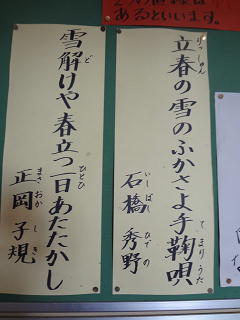 あるといいます。
立春の雪のふかさよ手鞠唄
りっしゅん
てまりうた
石橋 秀野
いしばし ひでの
雪解けや春立つ一日あたたかし
ど
ひとひ
正岡 子規
まさおか しき